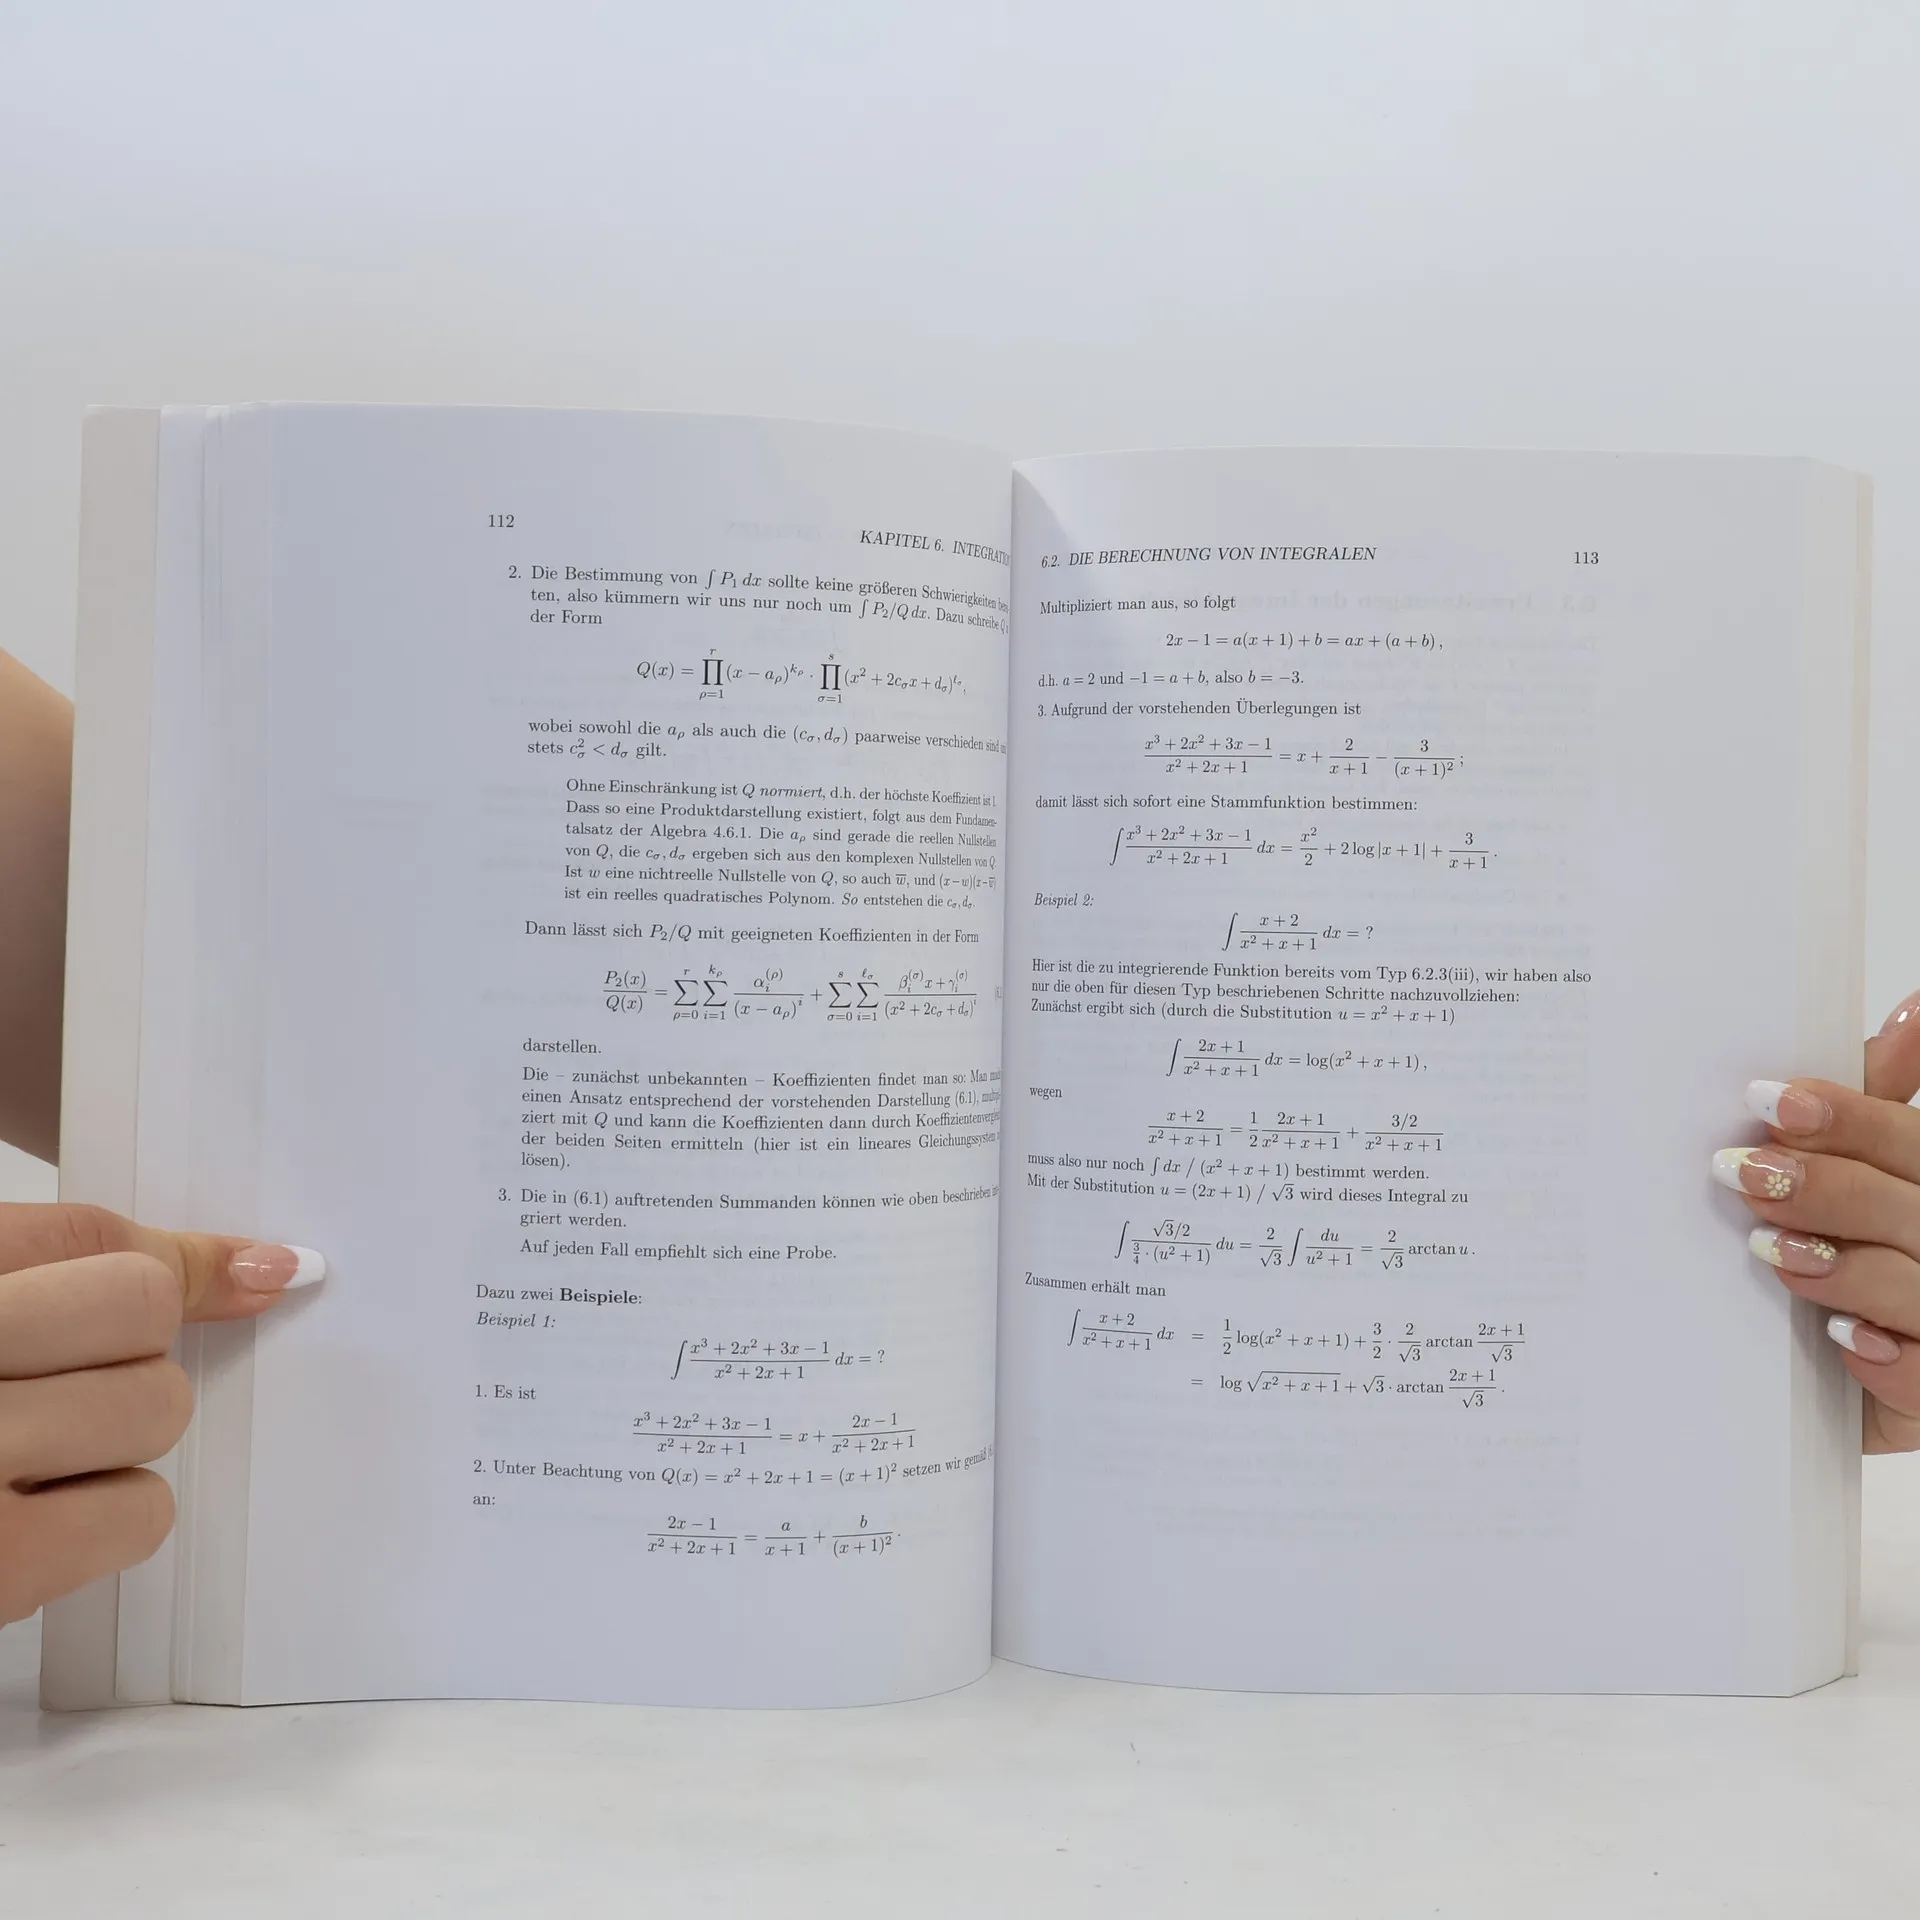 112
KAPITEL 6. INTEGRATION
2. Die Bestimmung von ∫ P₁ dx sollte keine größeren Schwierigkeiten
ten, also kümmern wir uns nur noch um ∫ P₂/Q dx. Dazu schreibe Q
der Form
Q(x) = ∏_{ρ=1}^{r} (x − a_ρ)^{k_ρ} · ∏_{σ=1}^{s} (x² + 2c_σx + d_σ)^{ℓ_σ},
wobei sowohl die a_ρ als auch die (c_σ, d_σ) paarweise verschieden sind
stets c_σ² < d_σ gilt.
Ohne Einschränkung ist Q normiert, d.h. der höchste Koeffizient ist 1.
Dass so eine Produktdarstellung existiert, folgt aus dem Fundamen-
talsatz der Algebra 4.6.1. Die a_ρ sind gerade die reellen Nullstellen
von Q, die c_σ, d_σ ergeben sich aus den komplexen Nullstellen von Q.
Ist w eine nichtreelle Nullstelle von Q, so auch w̅, und (x−w)(x−w̅)
ist ein reelles quadratisches Polynom. So entstehen die c_σ, d_σ.
Dann lässt sich P₂/Q mit geeigneten Koeffizienten in der Form
P₂(x)/Q(x) = ∑_{ρ=0}^{r} ∑_{i=1}^{k_ρ} α_i^{(ρ)}/(x − a_ρ)^i + ∑_{σ=0}^{s} ∑_{i=1}^{ℓ_σ} (β_i^{(σ)}x + γ_i^{(σ)})/(x² + 2c_σ + d_σ)^i
darstellen.
Die – zunächst unbekannten – Koeffizienten findet man so: Man
einen Ansatz entsprechend der vorstehenden Darstellung (6.1),
ziert mit Q und kann die Koeffizienten dann durch Koeffizientenvergleich
der beiden Seiten ermitteln (hier ist ein lineares Gleichungssystem
lösen).
3. Die in (6.1) auftretenden Summanden können wie oben beschrieben
griert werden.
Auf jeden Fall empfiehlt sich eine Probe.
Dazu zwei Beispiele:
Beispiel 1:
∫ (x³ + 2x² + 3x − 1)/(x² + 2x + 1) dx = ?
1. Es ist
(x³ + 2x² + 3x − 1)/(x² + 2x + 1) = x + (2x − 1)/(x² + 2x + 1)
2. Unter Beachtung von Q(x) = x² + 2x + 1 = (x + 1)² setzen wir gemäß
an:
(2x − 1)/(x² + 2x + 1) = a/(x + 1) + b/(x + 1)² .
6.2. DIE BERECHNUNG VON INTEGRALEN 113
Multipliziert man aus, so folgt
2x − 1 = a(x + 1) + b = ax + (a + b) ,
d.h. a = 2 und −1 = a + b, also b = −3.
3. Aufgrund der vorstehenden Überlegungen ist
(x³ + 2x² + 3x − 1)/(x² + 2x + 1) = x + 2/(x + 1) − 3/(x + 1)² ;
damit lässt sich sofort eine Stammfunktion bestimmen:
∫ (x³ + 2x² + 3x − 1)/(x² + 2x + 1) dx = x²/2 + 2 log |x + 1| + 3/(x + 1) .
Beispiel 2:
∫ (x + 2)/(x² + x + 1) dx = ?
Hier ist die zu integrierende Funktion bereits vom Typ 6.2.3(iii), wir haben also
nur die oben für diesen Typ beschriebenen Schritte nachzuvollziehen:
Zunächst ergibt sich (durch die Substitution u = x² + x + 1)
∫ (2x + 1)/(x² + x + 1) dx = log(x² + x + 1) ,
wegen
(x + 2)/(x² + x + 1) = 1/2 (2x + 1)/(x² + x + 1) + (3/2)/(x² + x + 1)
muss also nur noch ∫ dx / (x² + x + 1) bestimmt werden.
Mit der Substitution u = (2x + 1) / √3 wird dieses Integral zu
∫ (√3/2)/(3/4 · (u² + 1)) du = 2/√3 ∫ du/(u² + 1) = 2/√3 arctan u .
Zusammen erhält man
∫ (x + 2)/(x² + x + 1) dx = 1/2 log(x² + x + 1) + 3/2 · 2/√3 arctan (2x + 1)/√3
= log √(x² + x + 1) + √3 · arctan (2x + 1)/√3 .